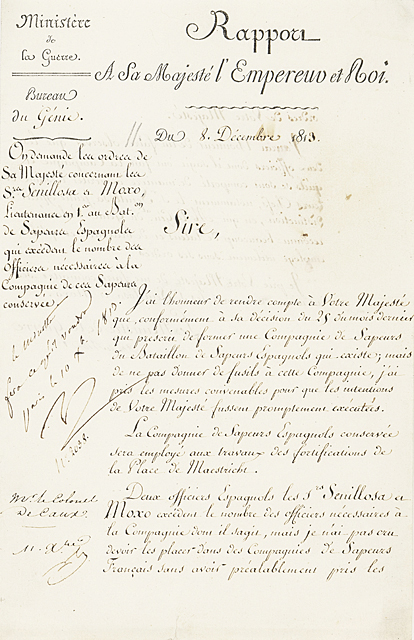 Ministère
de
la Guerre.
Bureau
du Génie.
Rapport
A Sa Majesté l'Empereur et Roi.
Du 8. Décembre 1813.
On demande les ordres de
Sa Majesté concernant les
Srs Senillosa et Moxo,
Lieutenants en 1er au Baton
de Sapeurs Espagnols
qui excèdent le nombre des
Officiers nécessaires à la
Compagnie de ces Sapeurs
conservée.
Sire,
J'ai l'honneur de rendre compte à Votre Majesté
que, conformément à sa décision du 25 du mois dernier
qui prescrit de former une Compagnie de Sapeurs
du Bataillon de Sapeurs Espagnols qui existe; mais
de ne pas donner de fusils à cette Compagnie, j'ai
pris les mesures convenables pour que les intentions
de Votre Majesté fussent promptement exécutées.
La Compagnie de Sapeurs Espagnols conservée
sera employé aux travaux des fortifications de
la Place de Maestricht.
Deux officiers Espagnols les Srs Senillosa et
Moxo excèdent le nombre des officiers nécessaires à
la Compagnie dont il sagit, mais je n'ai pas cru
devoir les placer dans des Compagnies de Sapeurs
Français sans avoir préalablement pris les
le ministre
fera ce qu'il voudra
Paris le 10
Mr. le Colonel
De Caux.